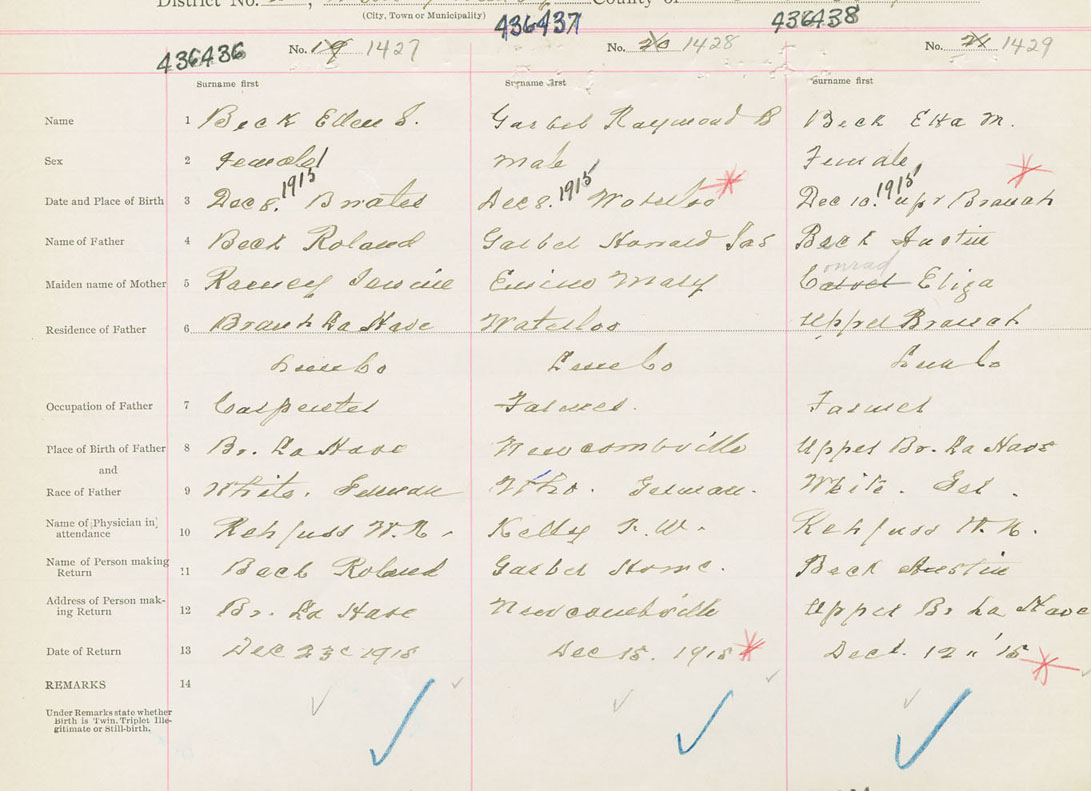 District No.
County of
(City, Town or Municipality)
436436 No. 19 1427 436437 No. 20 1428 436438 No. 21 1429
Surname first Surname first Surname first
Name 1 Beck Ellen S. Garber Raymond B Beck Etta M.
Sex 2 Female Male Female
Date and Place of Birth 3 Dec 8. 1915 Dec 8. 1915 Waterloo Dec 10. 1915 Upr Branch
Name of Father 4 Beck Roland Garber Howard Jas Beck Austin
Maiden name of Mother 5 Ramey Mary Conrad Eliza
Residence of Father 6 Branch La Have Waterloo Upper Branch
Lunebo Lunebo Lunbo
Occupation of Father 7 Carpenter Farmer. Farmer
Place of Birth of Father 8 Br. La Have Newcombville Upper Br. La Have
and
Race of Father 9 White. German German. White. Ger.
Name of [Physician in] attendance 10 Rehfuss W.N. Kelly F.W. Rehfuss W.N.
Name of Person making Return 11 Beck Roland Garber Beck Austin
Address of Person making Return 12 Br. La Have Newcombville Upper Br La Have
Date of Return 13 Dec 23d 1915 Dec 15. 1915 Dect. 12 " 15
REMARKS 14
Under Remarks state whether
Birth is Twin, Triplet Ille-
gitimate or Still-birth.